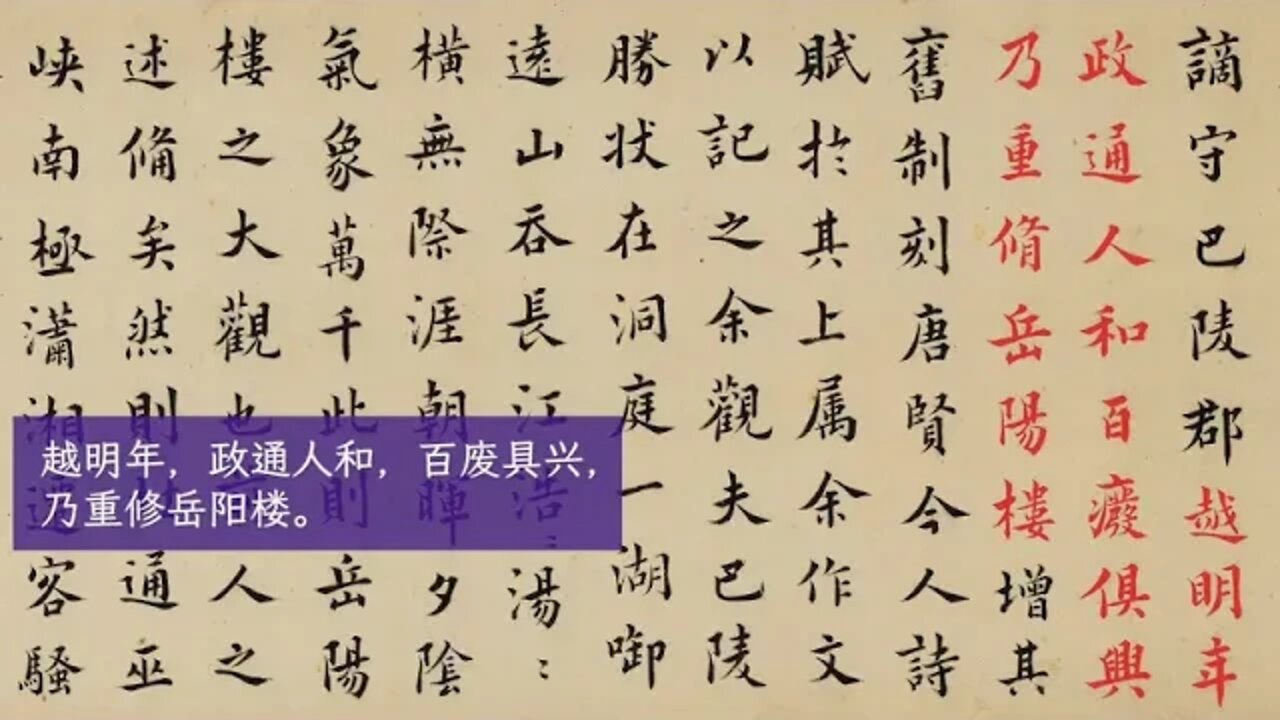 謫守巴陵郡越明年
政通人和百癈俱興
乃重脩岳陽樓增其
舊制刻唐賢今人詩
賦於其上属余作文
以記之余觀夫巴陵
勝狀在洞庭一湖啣
遠山吞長江浩：湯：
橫無際涯朝暉夕陰
氣象萬千此則岳陽
樓之大觀也人之
述俻矣然則通巫
峽南極瀟湘遷客騷
越明年，政通人和，百废具兴，
乃重修岳阳楼。